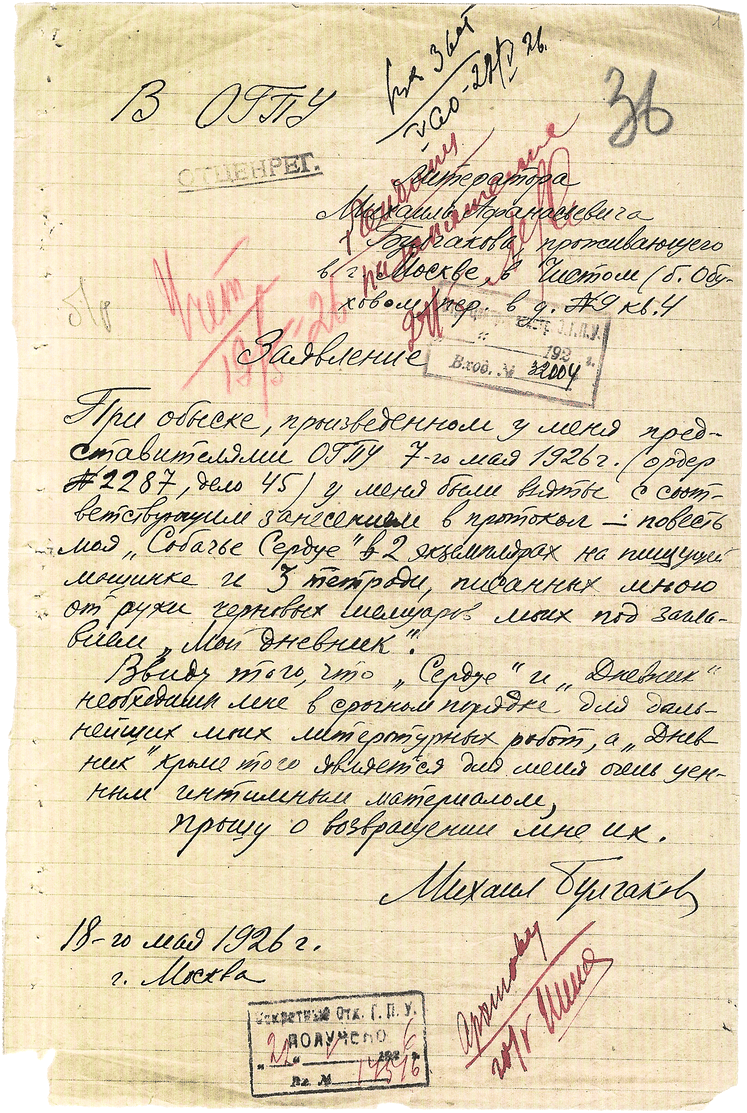 1
36
28/V 26.
В ОГПУ
ОТЦЕНРЕГ.
Литератора
Михаила Афанасьевича
Булгакова, проживающего
в г. Москве, в Чистом (б. Обу-
ховом) пер. в д. №9 кв. 4
Учет
19/5-26
О.Г.П.У.
" " 192 г.
Вход. № 32004
Заявление
При обыске, произведенном у меня пред-
ставителями ОГПУ 7-го мая 1926 г. (ордер
№2287, дело 45) у меня были взяты с соот-
ветствующим занесением в протокол — повесть
моя „Собачье Сердце" в 2 экземплярах на пишущей
машинке и 3 тетради, писанных мною
от руки черновых мемуаров моих под загла-
вием „Мой дневник".
Ввиду того, что „Сердце" и „Дневник"
необходимы мне в срочном порядке для даль-
нейших моих литературных работ, а „Днев-
ник" кроме того является для меня очень цен-
ным интимным материалом,
прошу о возвращении мне их.
Михаил Булгаков
18-го мая 1926 г.
г. Москва
Секретный Отд. Г. П. У.
ПОЛУЧЕНО
Вх. №